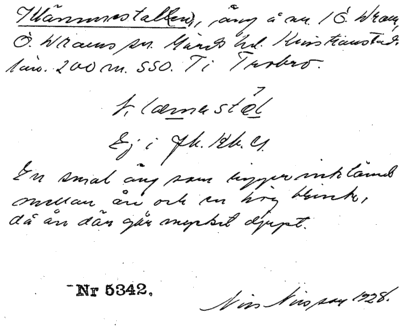 Klämmestall(en), äng å nr 1 Ö. Wram,
Ö. Wrams sn. Gärds hd. Kristianstads
län. 200 m. SSO. Ti Tusbro.
Ej i Jb. Kb. G
En smal äng som ligger inklämd
mellan ån och en hög brink,
då ån där går mycket djupt.
Nr 5342.
Nils Nilsson 1928.